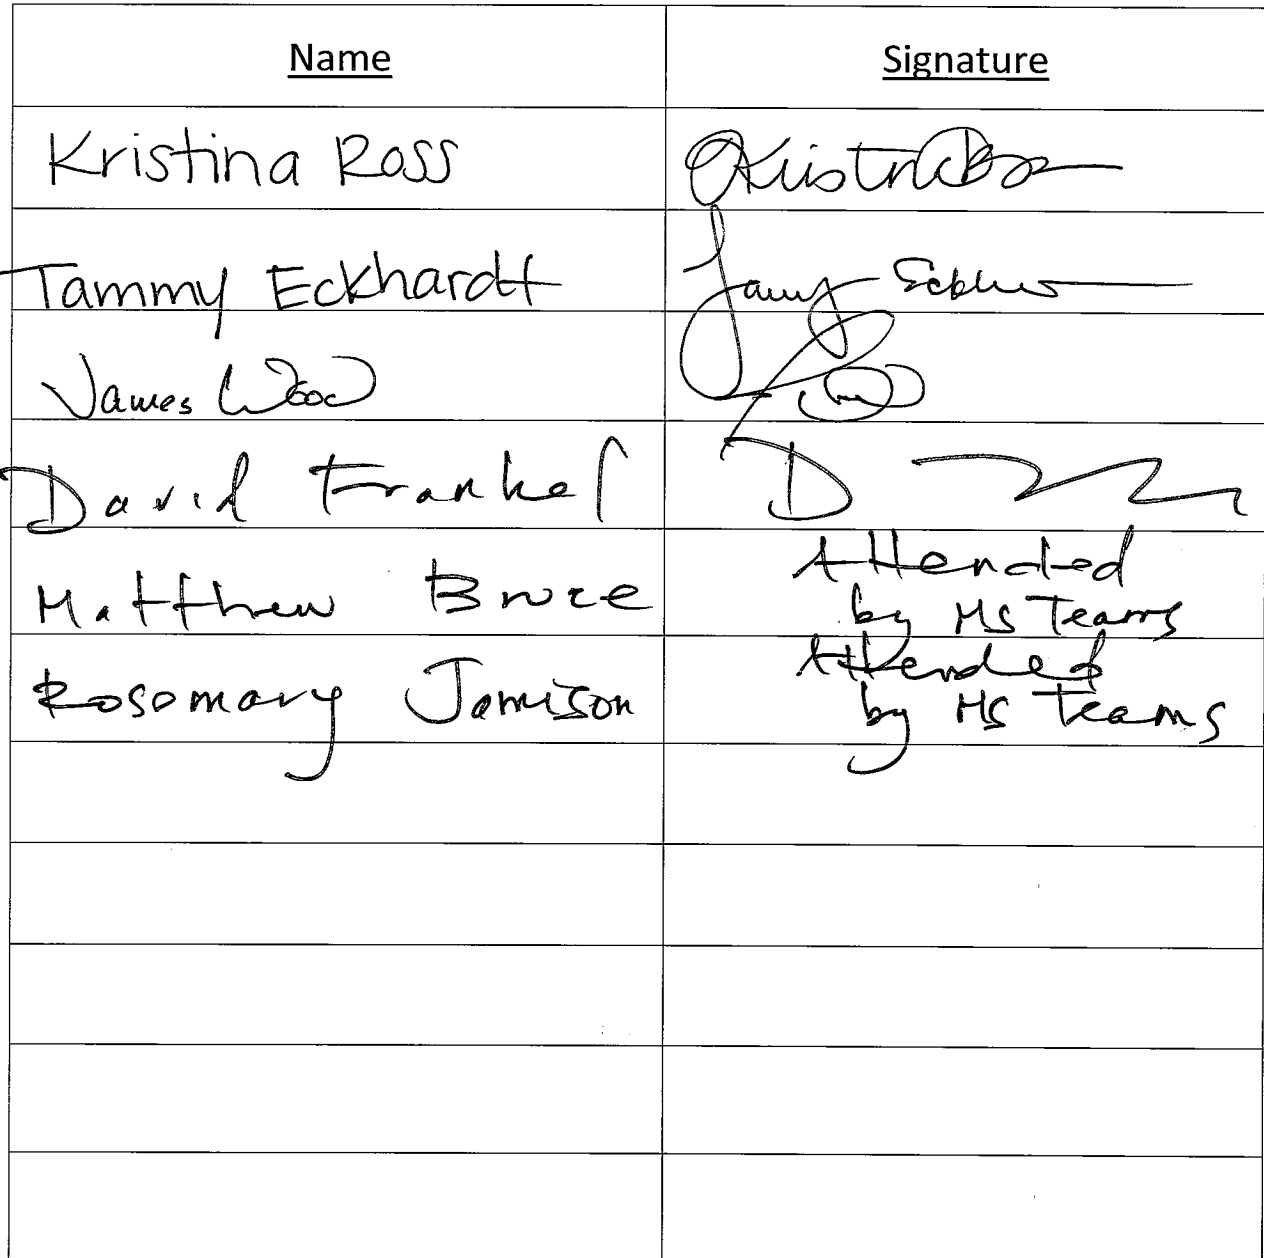 Name Signature
Kristina Ross Kristina Ross
Tammy Eckhardt Tammy
James Wood
David Frankel D
Matthew Bruce Attended
by MS Teams
Rosemary Jamison Attended
by MS Teams